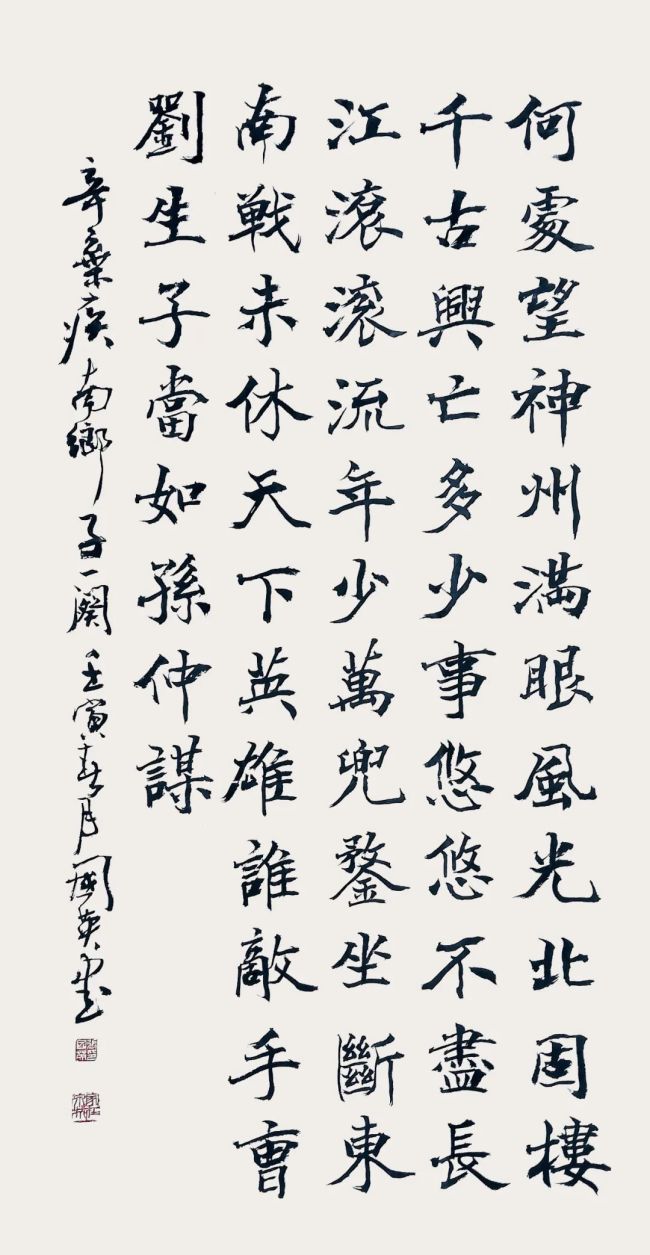 何處望神州滿眼風光北固樓
千古興亡多少事悠悠不盡長
江滾滾流年少萬兜鍪坐斷東
南戦未休天下英雄誰敵手曹
劉生子當如孫仲謀
辛棄疾南鄉子一闋壬寅春月國英書